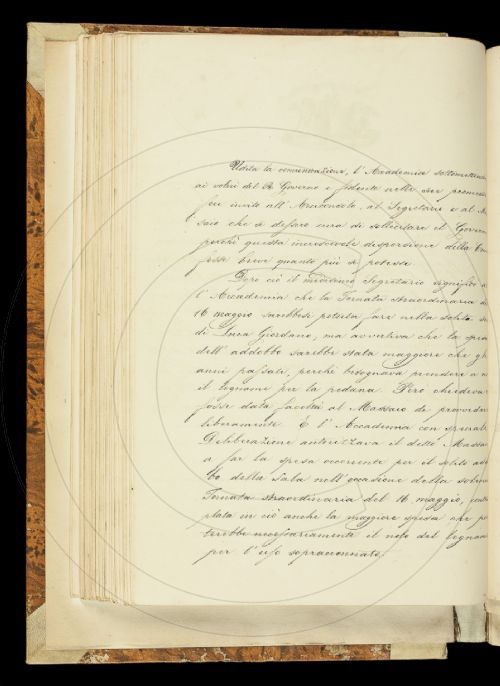 Udita la comunicazione, l'Accademia sottomettendosi
ai voleri del R. Governo e fidente nelle sue promesse
fece invito all'Arciconsolo, al Segretario e al Mas
saio che si dessero cura di sollecitare il Governo
perché questa increscevole dispersione della Cru
fosse breve quanto più si potesse.
Dopo ciò il medesimo Segretario significò a
l'Accademia che la Tornata straordinaria de
16 maggio sarebbesi potuta fare nella solita sa
di Luca Giordano, ma avvertiva che la spesa
dell'addobbo sarebbe stata maggiore che gli
anni passati, perché bisognava prendere a n
il legname per la pedana. Però chiedeva
fosse data facoltà al Massaio di provvedere
liberamente. E l'Accademia con speciale
Deliberazione autorizzava il detto Massa
a far la spesa occorrente per il solito add
bo della sala nell'occasione della solenne
Tornata straordinaria del 16 maggio,
plata in ciò anche la maggiore spesa che po
terebbe necessariamente il nolo del legname
per l'uso sopraccennato.